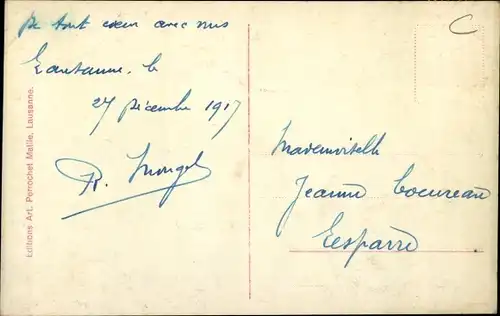 De tout cœur avec vous
Lausanne, le
27 Décembre 1917
R. Mongel
Mademoiselle
Jeanne Cocureau
Lesparre
Editions Art. Perrochet Matile, Lausanne.
C